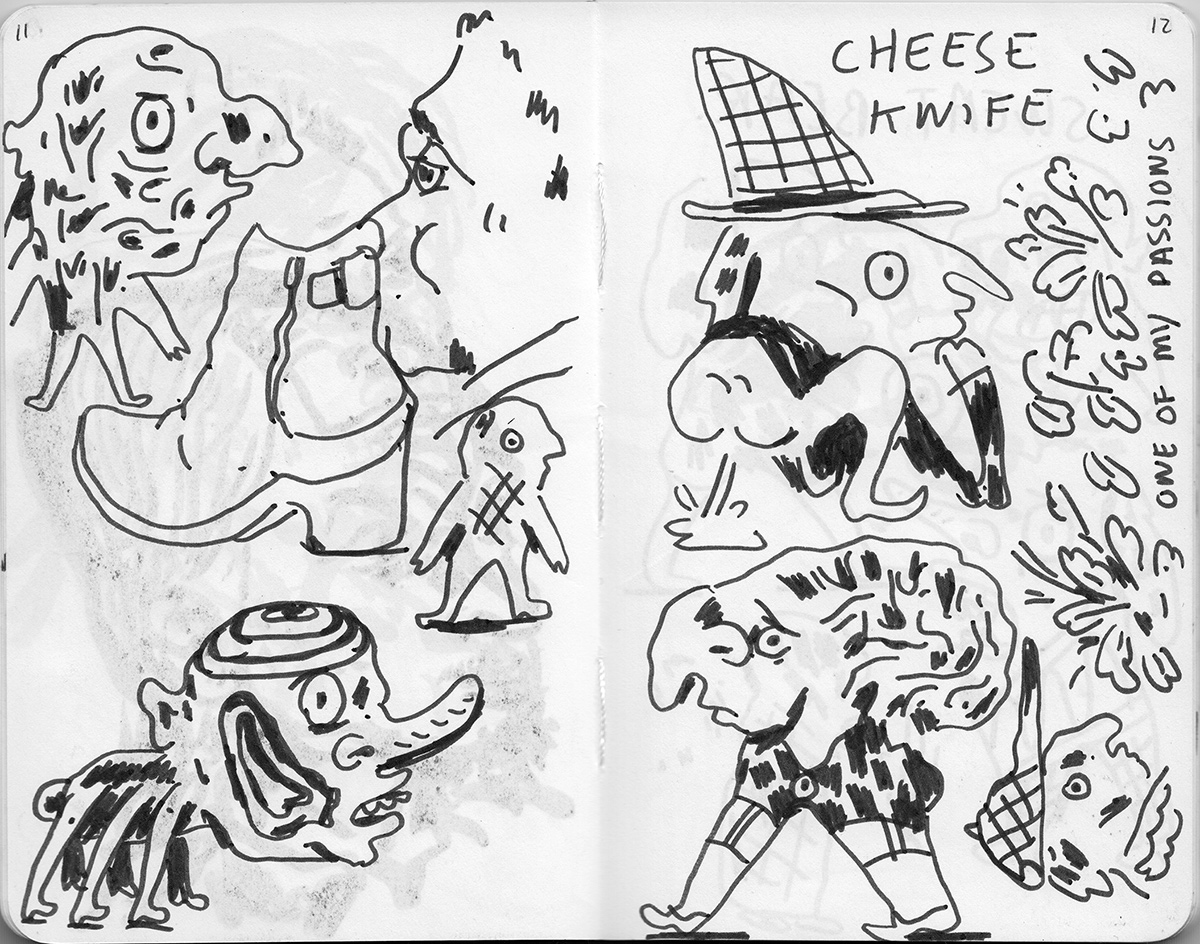 11
12
CHEESE
KNIFE
ONE OF MY PASSIONS